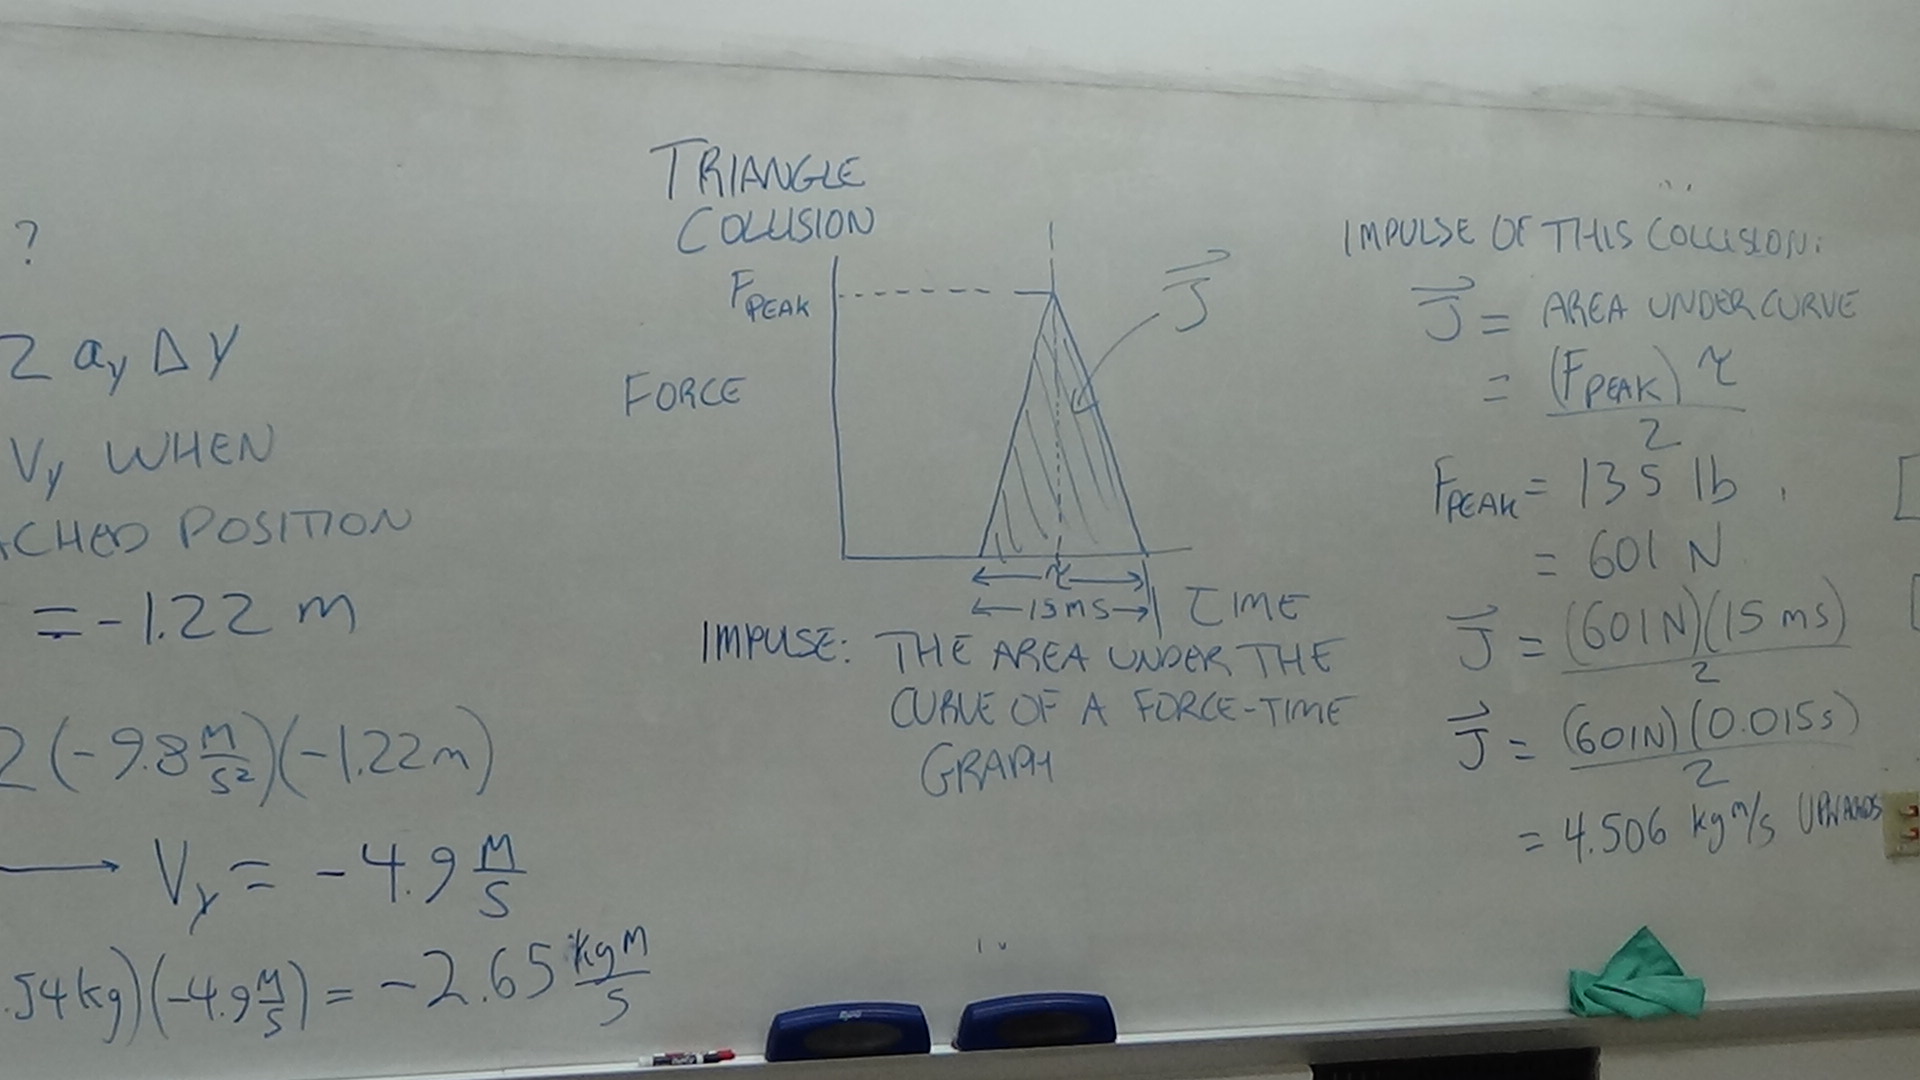 ?
2 ay Δy
Vy WHEN
ACHED POSITION
= -1.22 m
2(-9.8 M/S²)(-1.22m)
→ Vy = -4.9 M/S
.54kg)(-4.9 M/S) = -2.65 kgM/S
TRIANGLE
COLLISION
FPEAK
J
FORCE
τ
15ms
TIME
IMPULSE: THE AREA UNDER THE
CURVE OF A FORCE-TIME
GRAPH
IMPULSE OF THIS COLLISION:
J = AREA UNDER CURVE
= (FPEAK) τ / 2
FPEAK = 135 lb
= 601 N
J = (601N)(15 ms) / 2
J = (601N)(0.015s) / 2
= 4.506 kg m/s UPWARDS